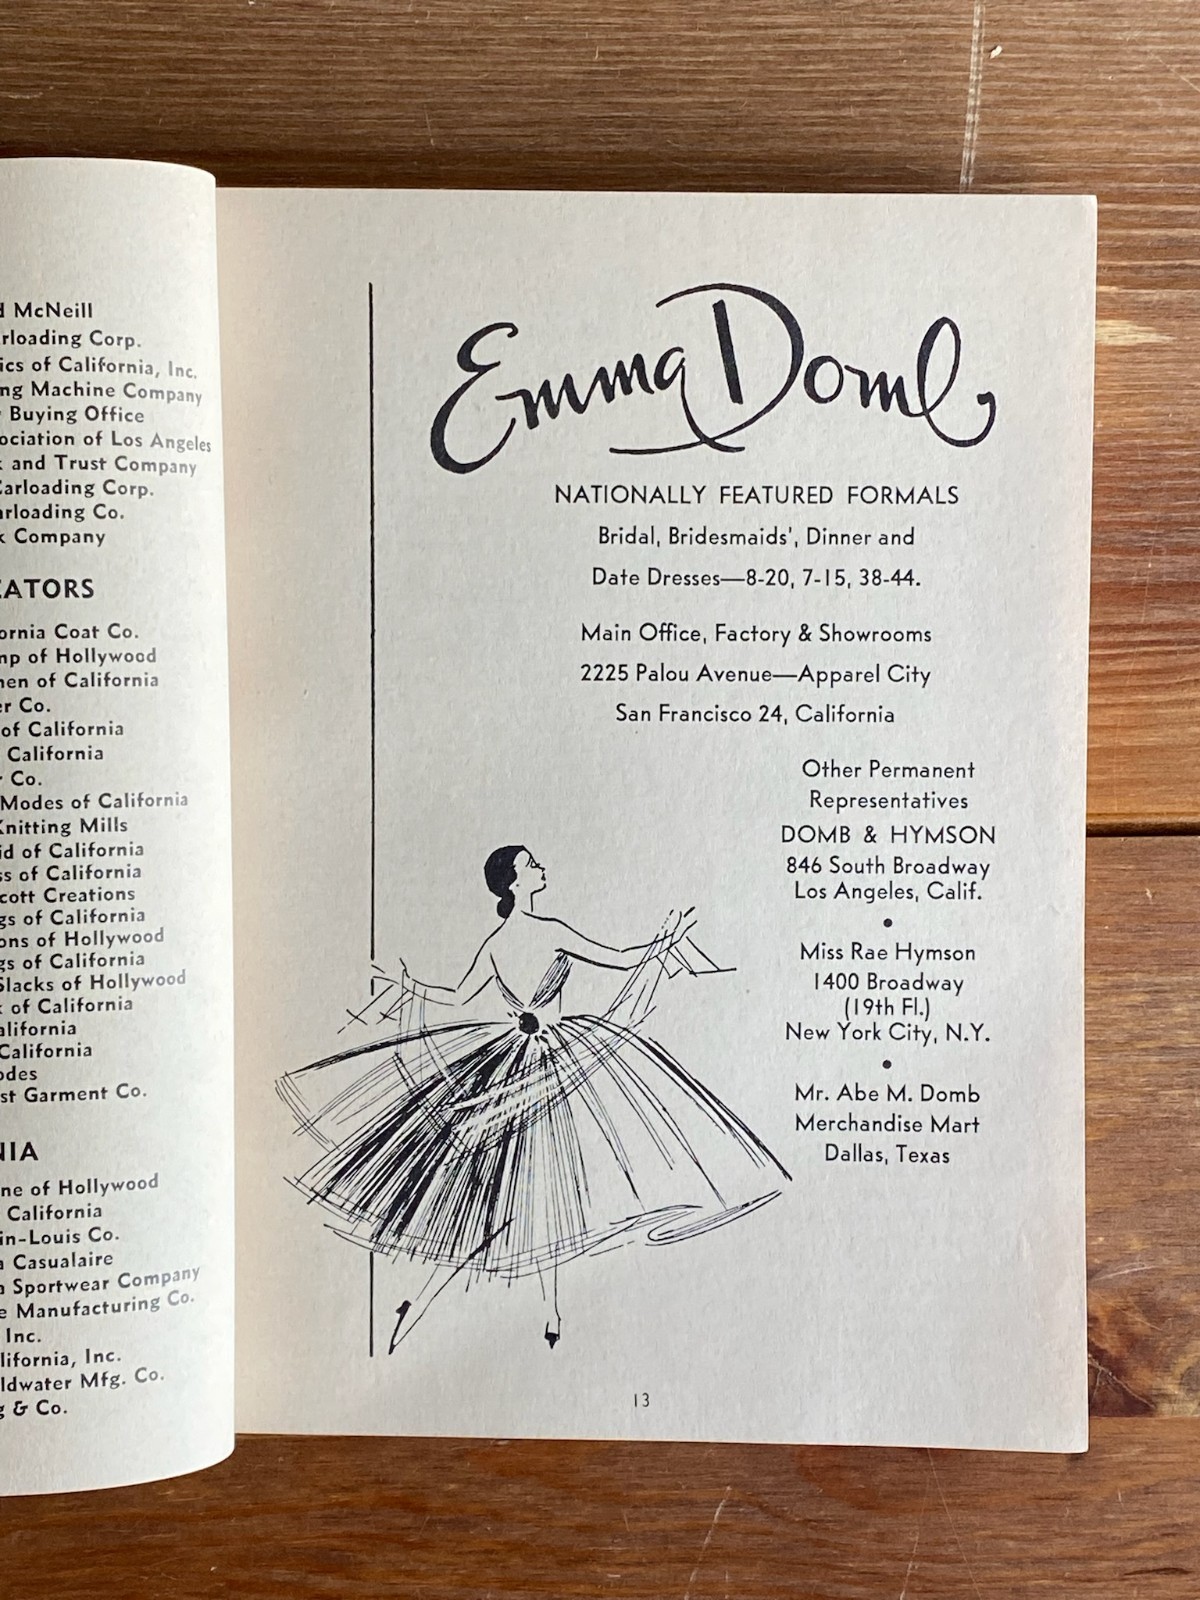 McNeill
Corp.
of California, Inc.
Machine Company
Buying Office
of Los Angeles
and Trust Company
Carloading Corp.
Co.
Company
Coat Co.
of Hollywood
of California
Co.
of California
California
Co.
Modes of California
Knitting Mills
of California
of California
Creations
of California
of Hollywood
of California
Slacks of Hollywood
of California
California
Garment Co.
of Hollywood
California
Co.
Casualaire
Sportwear Company
Manufacturing Co.
Inc.
Inc.
Mfg. Co.
& Co.
Emma Domb
NATIONALLY FEATURED FORMALS
Bridal, Bridesmaids', Dinner and
Date Dresses—8-20, 7-15, 38-44.
Main Office, Factory & Showrooms
2225 Palou Avenue—Apparel City
San Francisco 24, California
Other Permanent
Representatives
DOMB & HYMSON
846 South Broadway
Los Angeles, Calif.
Miss Rae Hymson
1400 Broadway
(19th Fl.)
New York City, N.Y.
Mr. Abe M. Domb
Merchandise Mart
Dallas, Texas
13